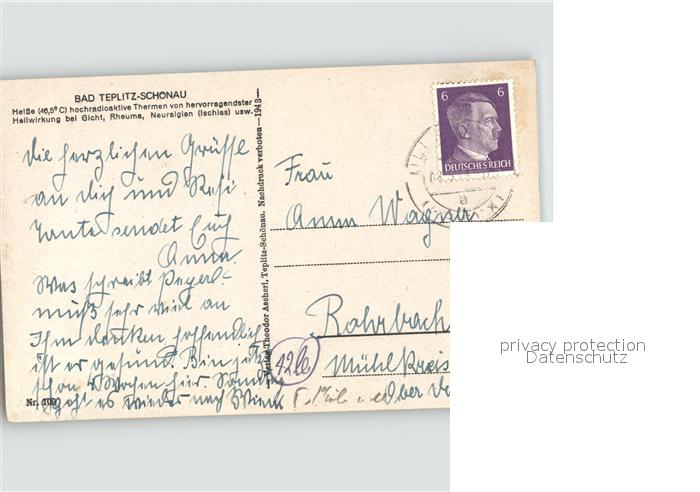 BAD TEPLITZ-SCHÖNAU
Heiße (46,5° C) hochradioaktive Thermen von hervorragendster
Heilwirkung bei Gicht, Rheuma, Neuralgien (Ischias) usw.
die herzlichen Grüsse
an dich und Resi
Tante sendet Euch
Anna.
Was schreibt
muß sehr viel an
Ihm denken, hoffendlich
ist er gesund. Bin jetzt
schon 4 Wochen hier. Sonntag
geht es wieder nach Wien
Nr. 100
Verlag Theodor Ascherl, Teplitz-Schönau. Nachdruck verboten—1943—
6 6
DEUTSCHES REICH
Frau
Anna Wagner
Rohrbach
Mühlkreis
12b
Ober Do
privacy protection
Datenschutz